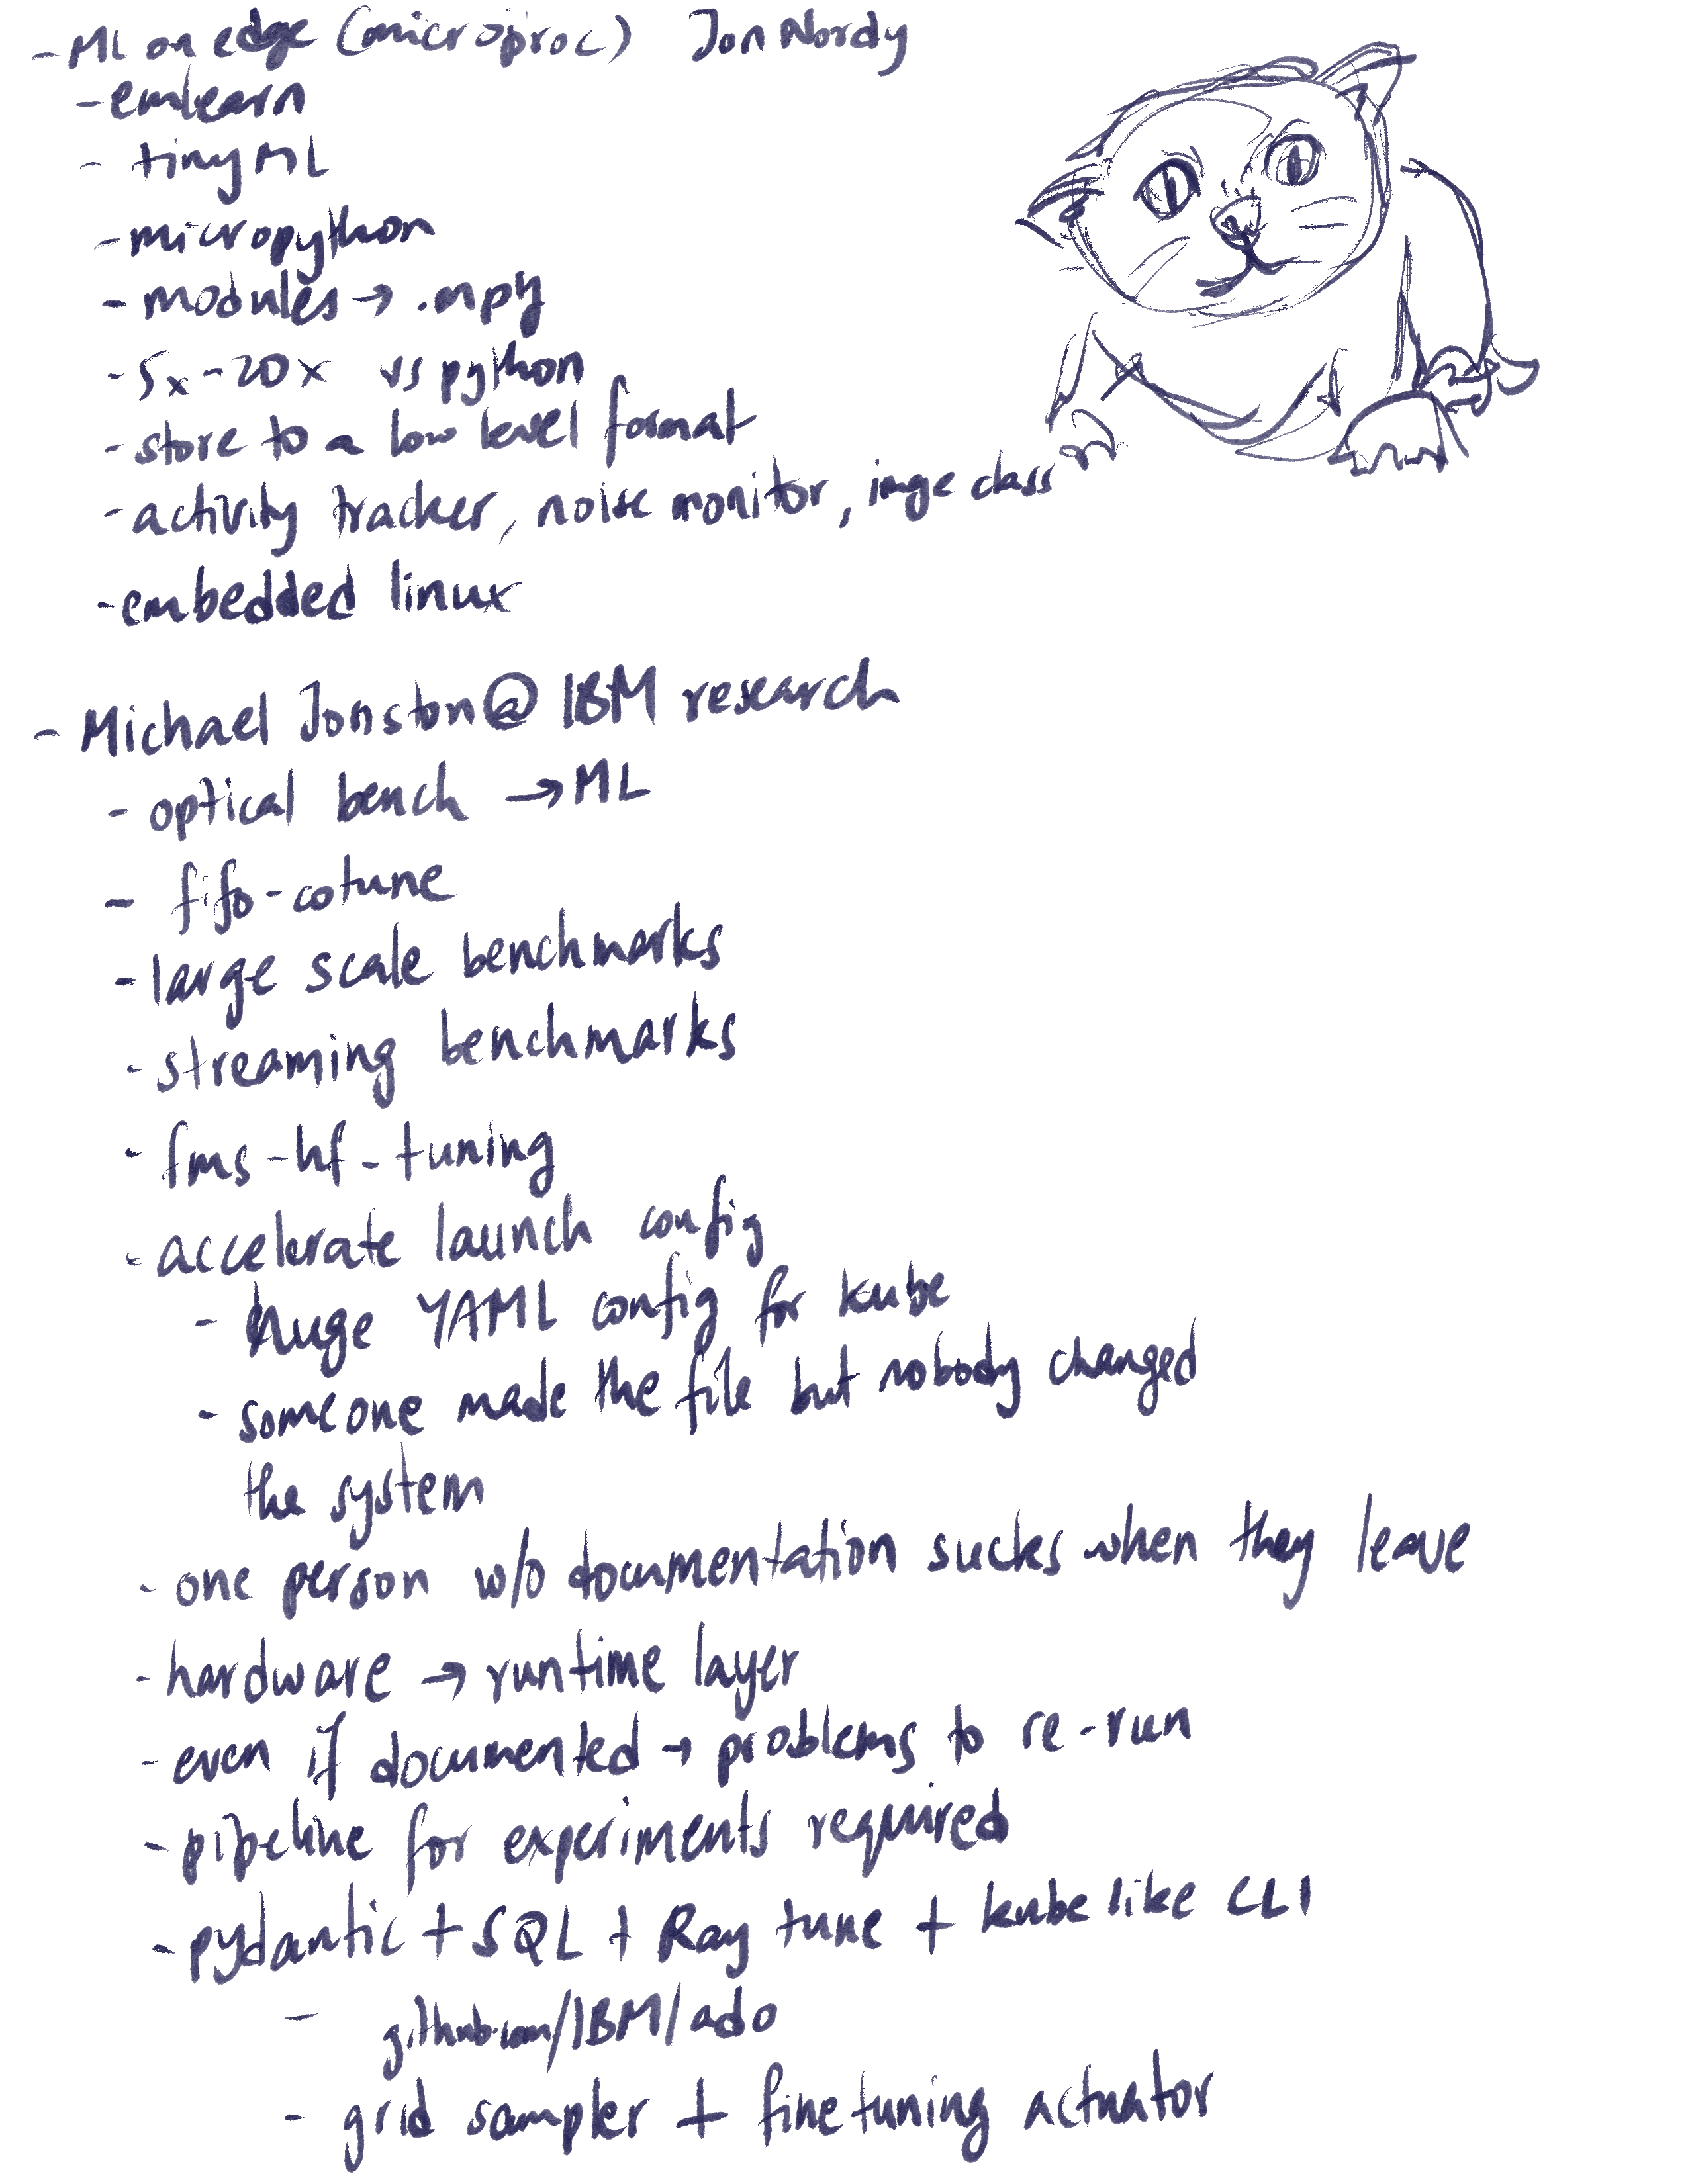 - ML on edge (microproc) Jon Nordy
- emlearn
- tinyML
- micropython
- modules → .mpy
- 5x-20x vs python
- store to a low level format
- activity tracker, noise monitor, imge class
- embedded linux
- Michael Jonston @ IBM research
- optical bench → ML
- fifo-cotune
- large scale benchmarks
- streaming benchmarks
- fms-hf-tuning
- accelerate launch config
- huge YAML config for kube
- someone made the file but nobody changed
the system
- one person w/o documentation sucks when they leave
- hardware → runtime layer
- even if documented → problems to re-run
- pipeline for experiments required
- pydantic + SQL + Ray tune + kube like CLI
- github.com/IBM/ado
- grid sampler + finetuning actuator